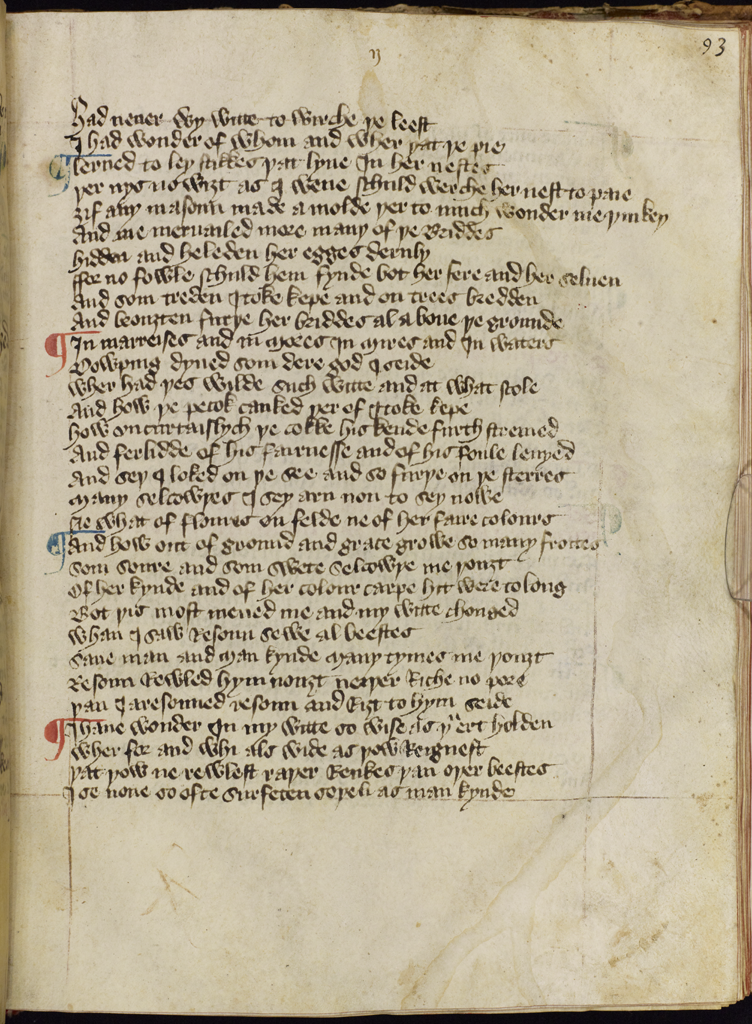 93
Had neuer wy witte to wirche þe leest
I had wonder of whom and wher þat þe pie
lerned to ley stikkes þat lyue In her nestes
þer nys no wiȝt as I wene schuld werche her nest to paie
ȝif any masoun made a molde þer to mich wonder me þinkeþ
And me merueiled more many of þe Briddes
hidden and heleden her egges dernly
ffor no fowle schuld hem fynde bot her fere and her seluen
And som treden I toke kepe and on trees bredden
And brouȝten furþe her briddes al aboue þe grounde
In marreises and in mores In mires and In waters
Dowping dyued som dere god I seide
wher had þes wylde such witte and at what scole
And how þe pecok cauked þer of I toke kepe
how vncurtaislych þe cokke his kende furth strened
And ferlidde of his fairnesse and of his foule leuyed
And sey I loked on þe see and so furþe on þe sterres
Many selcowþes I sey arn non to sey nowe
Ne what of floures on felde ne of her faire colours
And how out of ground and grace growe so many frottes
Som soure and som swete selcowþe me þouȝt
Of her kynde and of her colour carpe hit were to long
Bot þis most meued me and my witte chonged
whan I saw Resoun sewe al beestes
Saue man and man kynde many tymes me þouȝt
Resoun Rewled hym nouȝt neyþer Riche no pore
þan I aresoned resoun and Riȝt to hym seide
I haue wonder In my witte so wise as þu ert holden
wher for and whi als wide as þow Reignest
þat þow ne rewlest raþer Renkes þan oþer beestes
I se none so ofte surfeten soþeli as man kynde